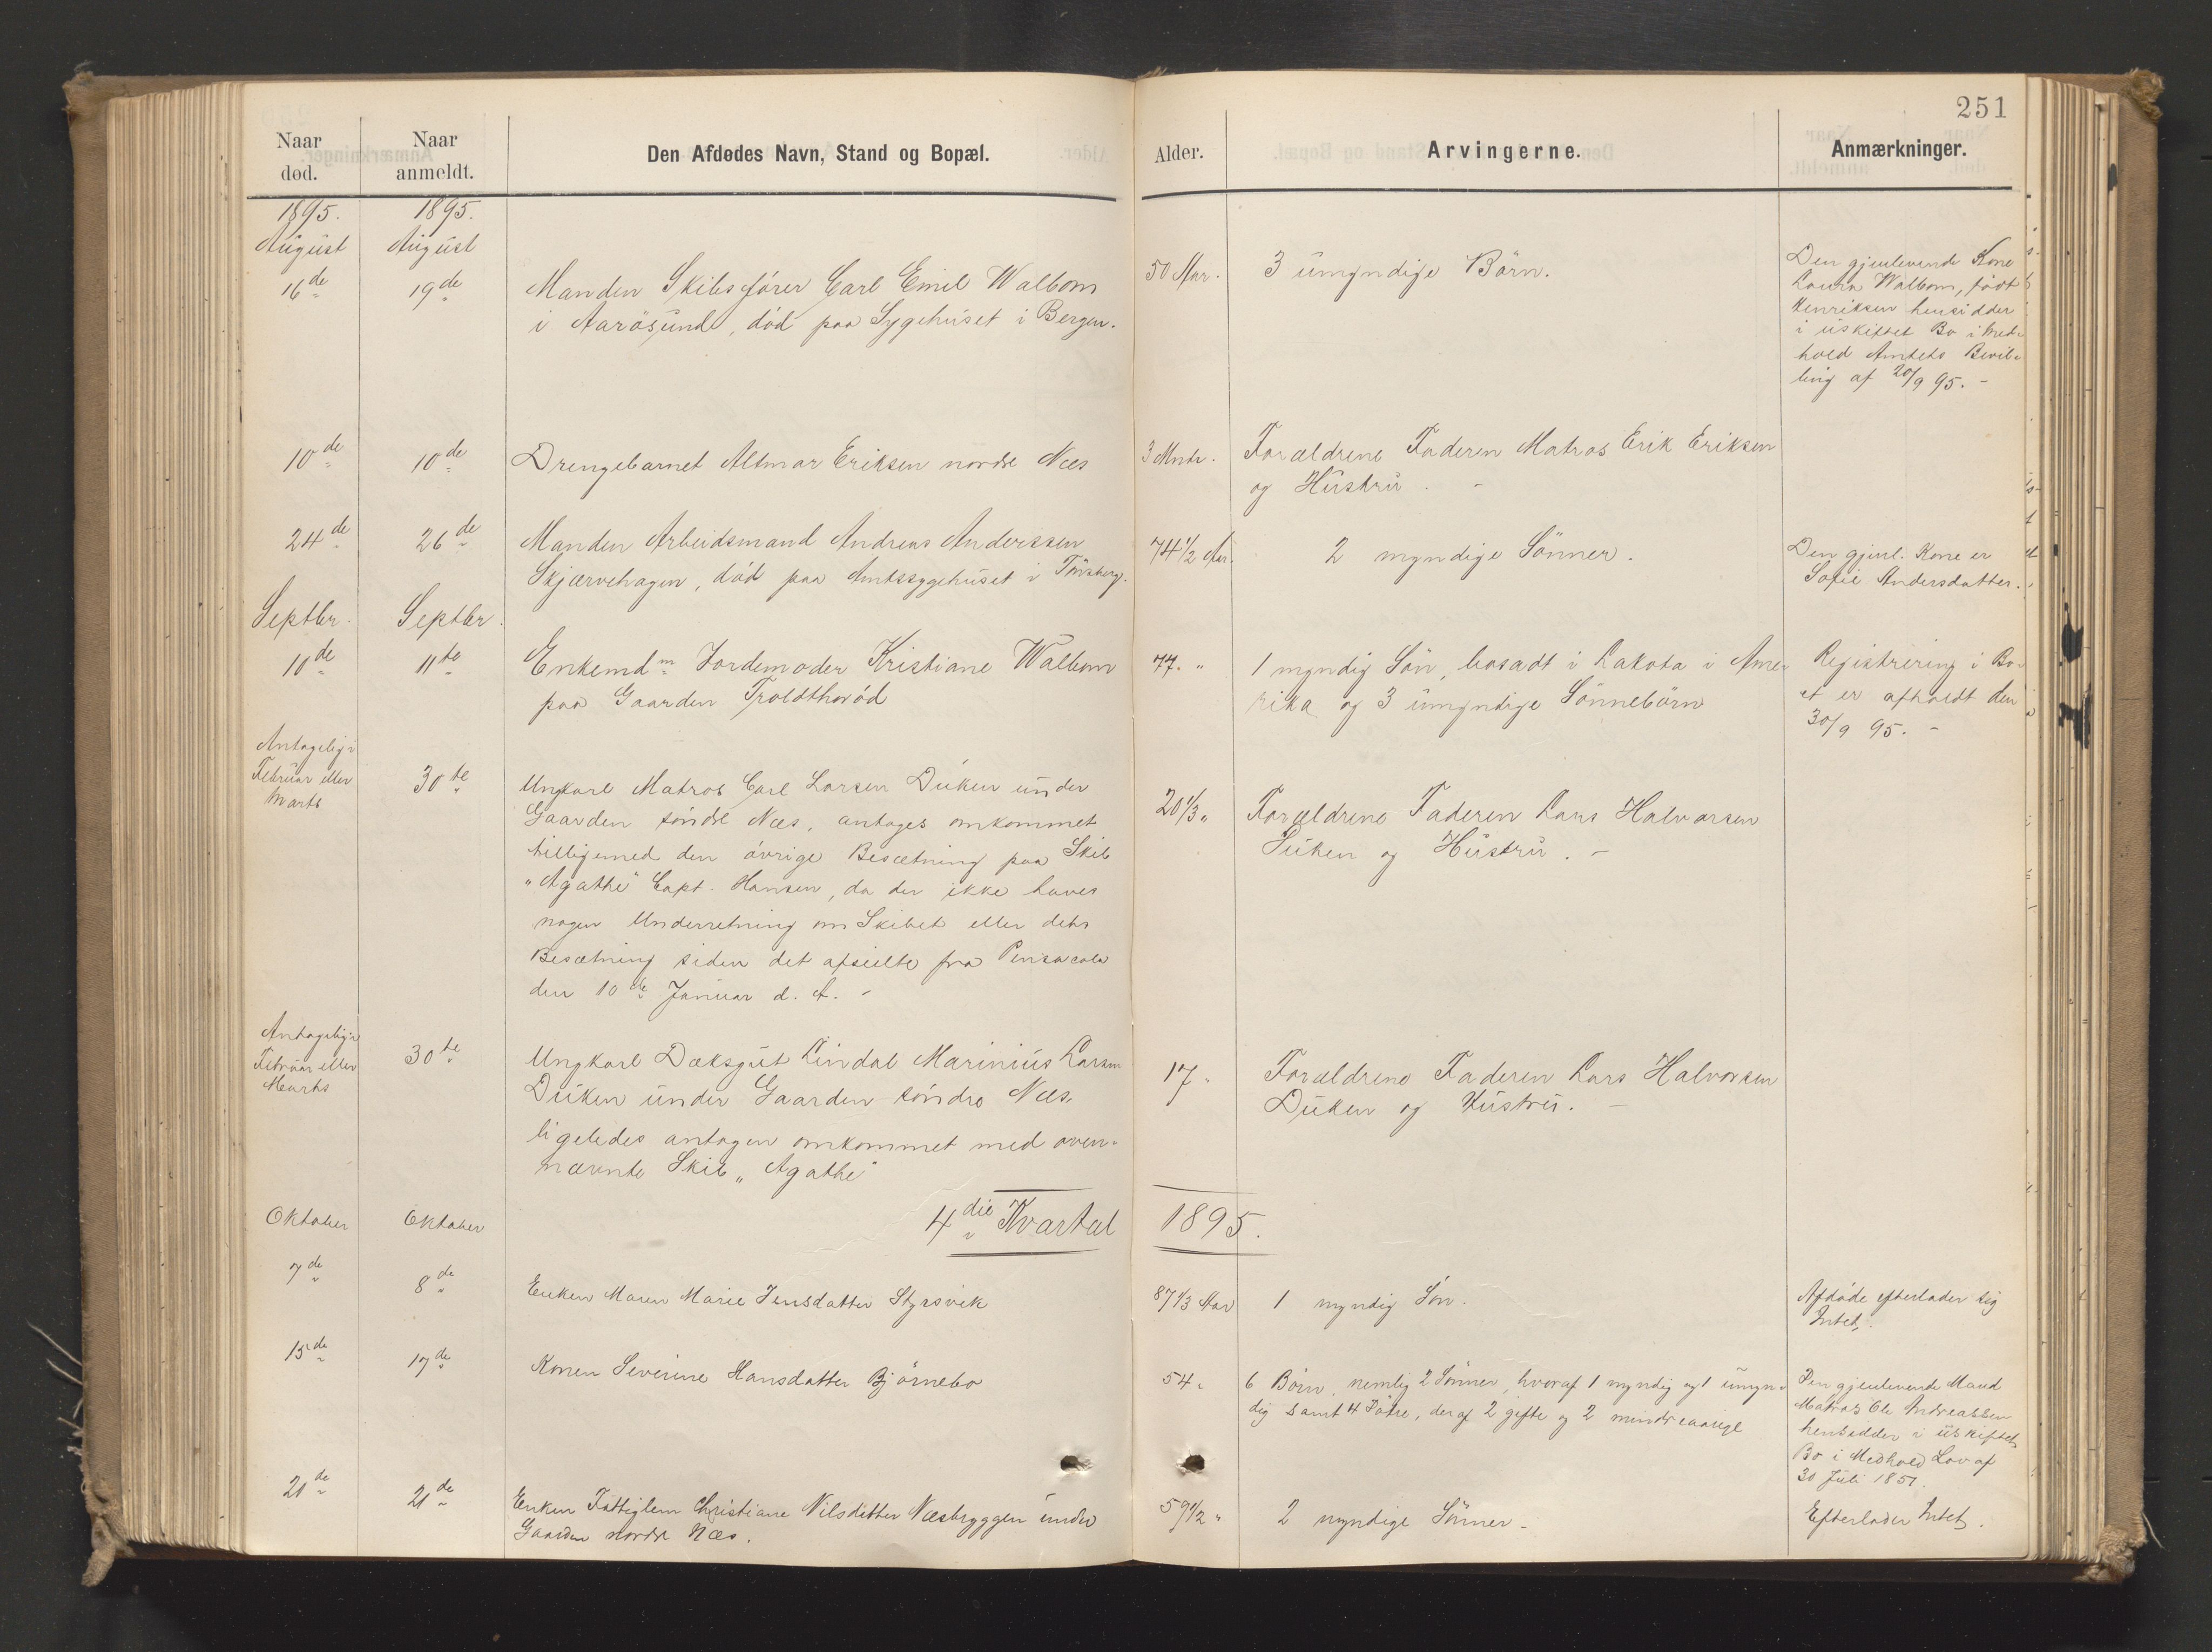 251
Naar død. Naar anmeldt. Den Afdødes Navn, Stand og Bopæl. Alder. Arvingerne. Anmærkninger.
1895. 1895.
August August
16de 19de Manden Skibsfører Carl Emil Walbom
i Aarøsund, död paa Sygehuset i Bergen.
50 Aar. 3 umyndige Börn.
Den gjenlevende Kone
Laura Walbom, född
Henriksen hensidder
i uskiftet Bo i Med-
hold Amtets Bevil-
ling af 20/9 95. -
10de 10de Drengebarnet Altmar Eriksen nordre Næs
3 Mndr. Forældrene Faderen Matros Erik Eriksen
og Hustru. -
24de 26de Manden Arbeidsmand Andreas Anderssen
Skjærvehagen, död paa Amtssygehuset i Tönsberg.
74 1/2 Aar. 2 myndige Sönner.
Den gjenl. Kone er
Sofie Andersdatter.
Septbr. Septbr.
10de 11te Enkemdm Jordemoder Kristiane Walbom
paa Gaarden Troldthoröd
77. " 1 myndig Sön, bosadt i Dakota i Ame-
rika og 3 umyndige Sönnebörn
Registrering i Bo-
et er afholdt den
30/9 95. -
Antageligv
Februar eller
Marts
30te Ungkarl Matros Carl Larsen Duken under
Gaarden söndre Næs, antages omkommet
tilligemed den övrige Besætning paa Skib
"Agathe" Capt. Hansen, da der ikke haves
nogen Underretning om Skibet eller dets
Besætning siden det afseilte fra Pensacola
den 10de Januar d. A. -
20 1/3 " Forældrene Faderen Lars Halvorsen
Duken og Hustru. -
Antageligv
Februar eller
Marts
30te Ungkarl Dæksgut Lindal Marinius Larsen
Duken under Gaarden söndre Næs,
ligeledes antagen omkommet med oven-
nævnte Skib "Agathe"
17 " Forældrene Faderen Lars Halvorsen
Duken og Hustru. -
4die Kvartal 1895.
Oktober Oktober
7de 8de Enken Maren Marie Jensdatter Styrsvik
87 1/3 Aar 1 myndig Sön.
Afdöde efterlader sig
Intet.
15de 17de Konen Severine Hansdatter Björnebo
54 " 6 Börn, nemlig 2 Sönner, hvoraf 1 myndig og 1 umyn-
dig samt 4 Døtre, deraf 2 gifte og 2 mindreaarige
Den gjenlevende Mand
Matros Ole Andreassen
hensidder i uskiftet
Bo i Medhold Lov af
30 Juli 1851.
21de 21de Enken Fattiglem Christiane Nilsdatter Næsbryggen under
Gaarden nordre Næs.
59 1/2 " 2 myndige Sönner -
Efterlader Intet.